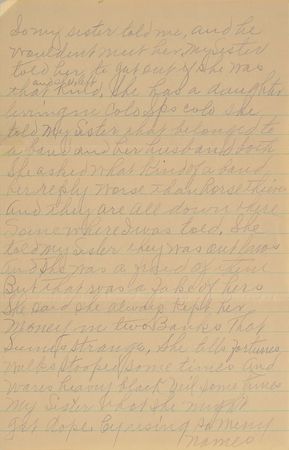 So my sister told me, and he
wouldent meet her. My sister
told her to get out if she was
that kind, and she left She has a daughter
living in Colo Sps Colo She
told my Sister that belonged to
a band and her husband both
She asked what kind of a band
her reply worse than horse thieves
And they are all down here
some where I was told, She
told my Sister they was outlaws
And she was afraid of them
But that was a fake of hers
She said she always kept her
Money in two Banks That
Seemes strange, She tells fortunes,
walks stooped some times And
Wares heavy black veil some times
My Sister that she might
get dope, by using so many
names